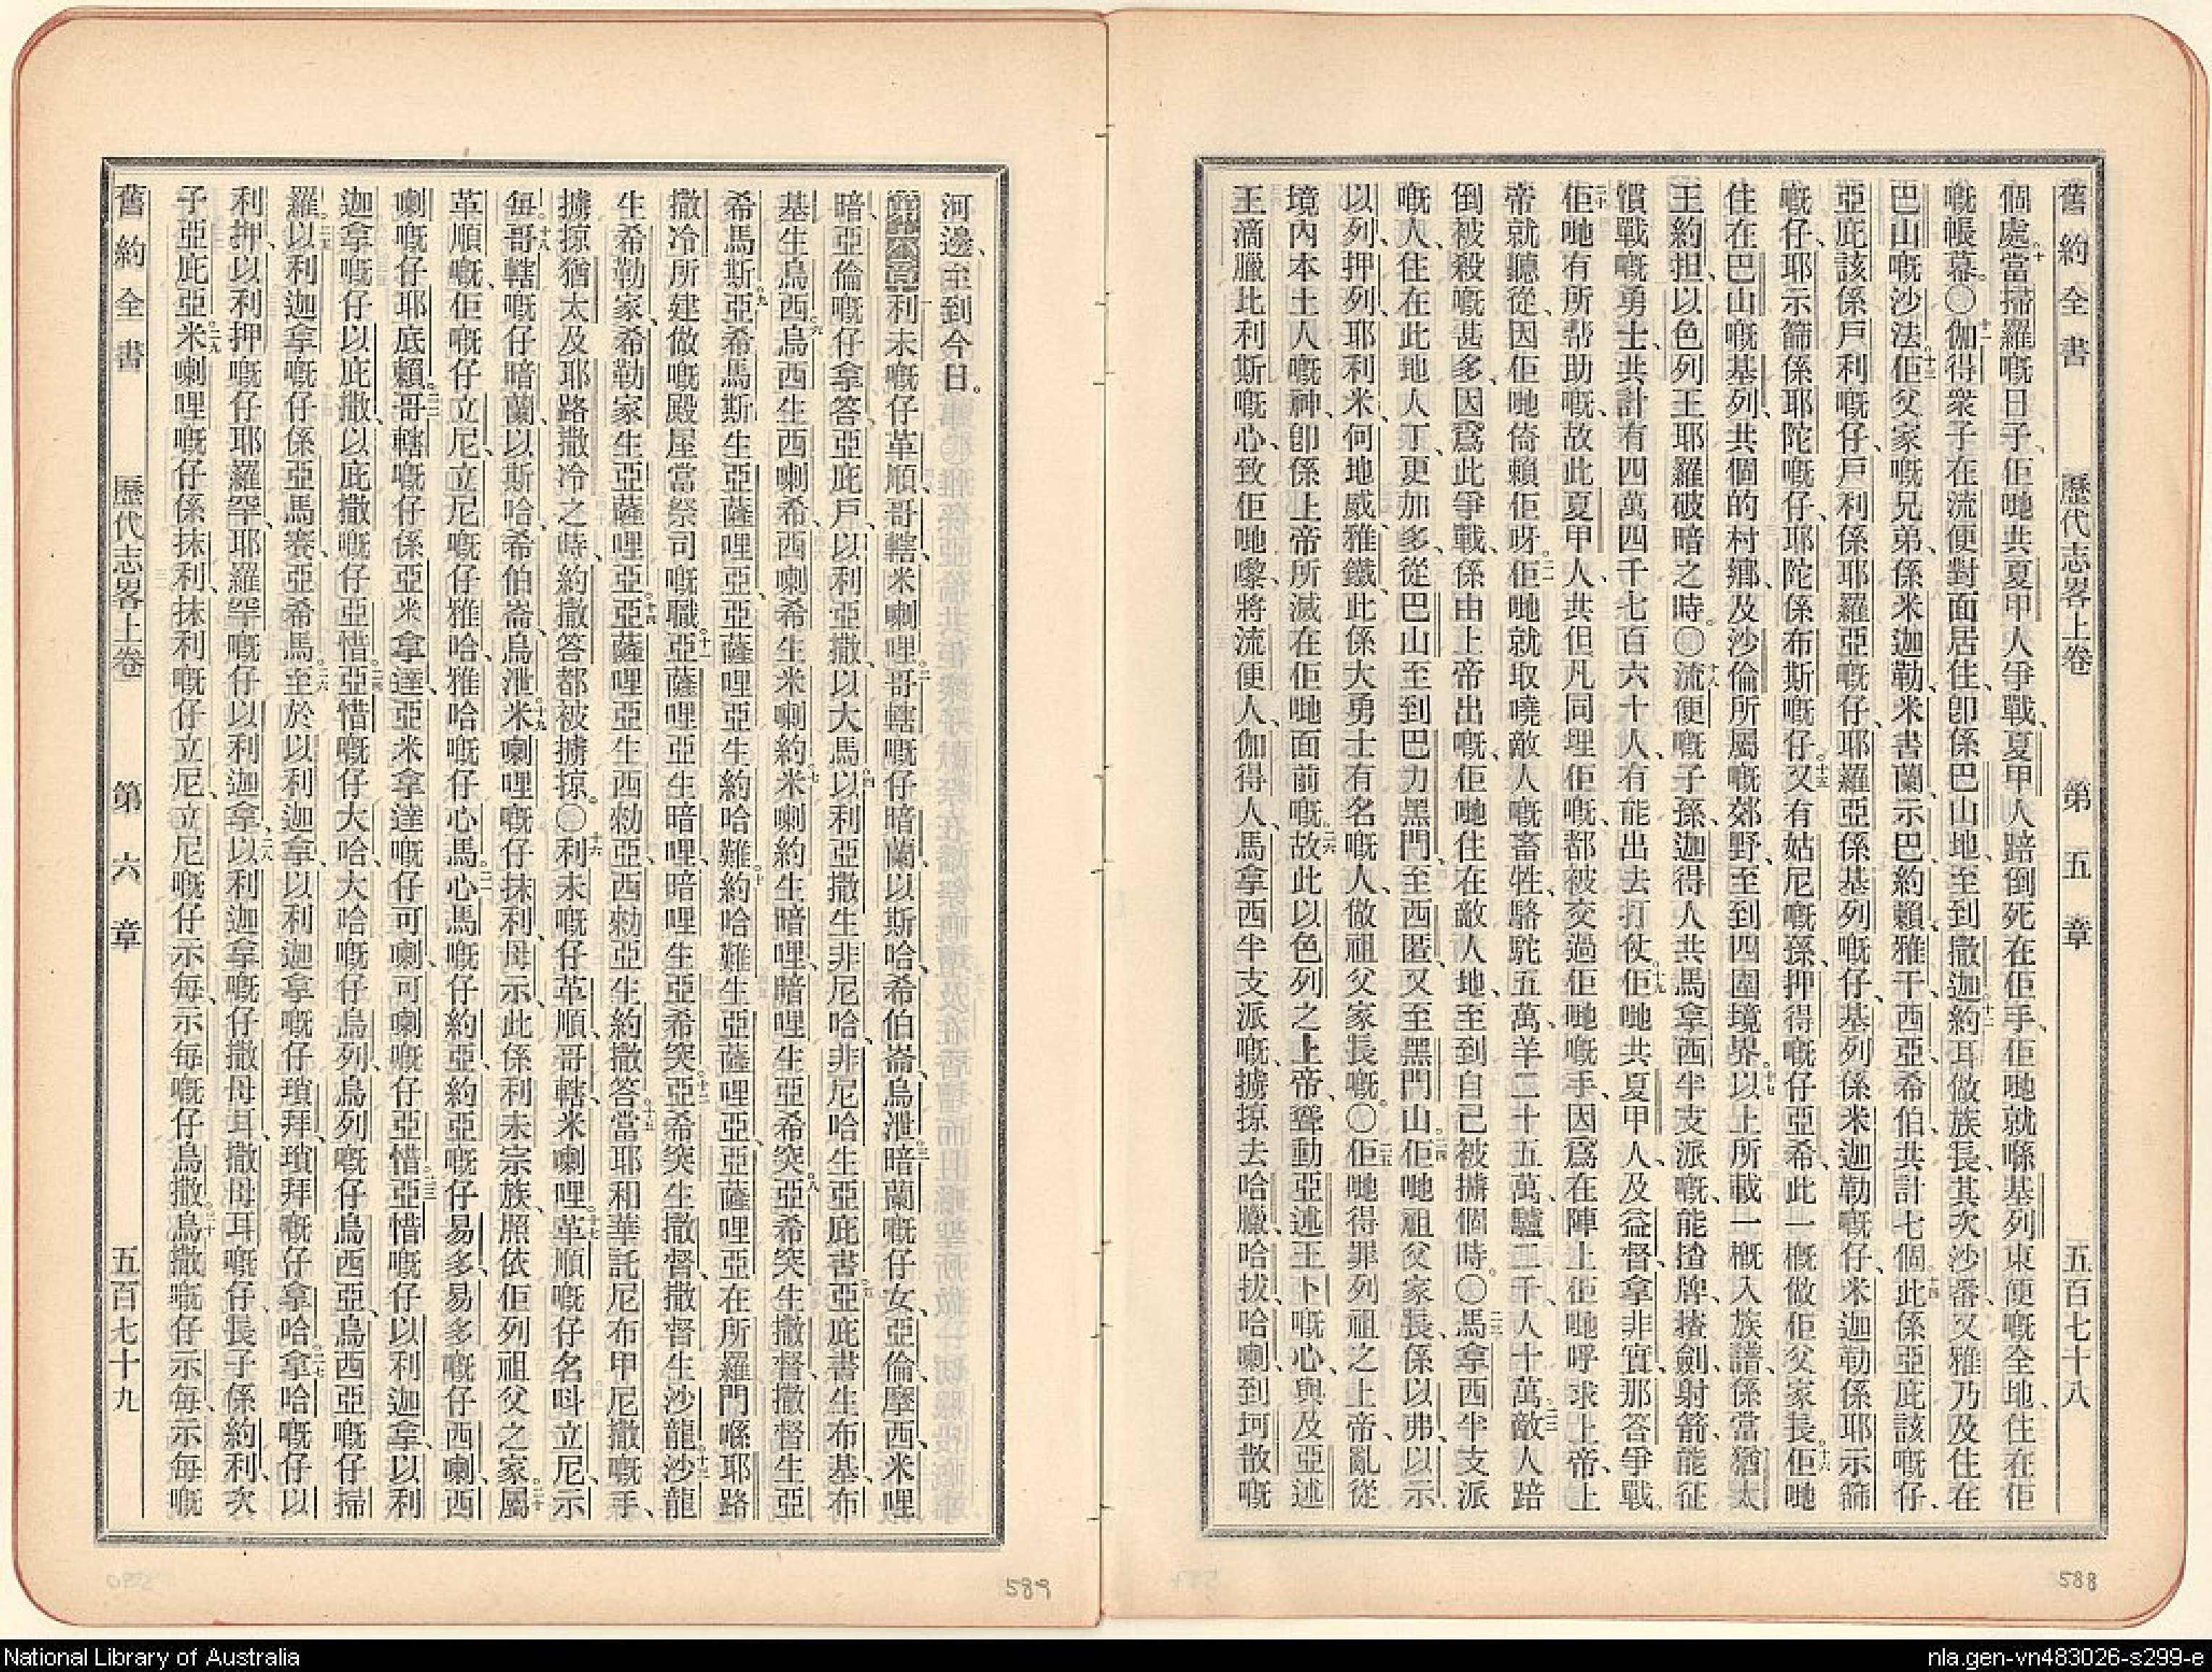 舊約全書 歷代志畧上卷 第五章 五百七十八
個處、當掃羅嘅日子、佢哋共夏甲人爭戰、夏甲人踣倒死在佢手、佢哋就喺基列東便嘅全地、住在佢
嘅帳幕。〇伽得衆子在流便對面居住、卽係巴山地、至到撒迦、約耳做族長、其次沙番、又雅乃及住在
巴山嘅沙法。佢父家嘅兄弟、係米迦勒、米書蘭、示巴、約賴、雅干、西亞、希伯、共計七個。此係亞庇該嘅仔、
亞庇該係戶利嘅仔、戶利係耶羅亞嘅仔、耶羅亞係基列嘅仔、基列係米迦勒嘅仔、米迦勒係耶示篩
嘅仔、耶示篩係耶陀嘅仔、耶陀係布斯嘅仔。又有姑尼嘅孫、押得嘅仔亞希、此一概做佢父家長。佢哋
住在巴山嘅基列、共個的村鄉、及沙倫所屬嘅郊野、至到四圍境界。以上所載一概入族譜、係當猶太
王約担、以色列王耶羅破暗之時。〇流便嘅子孫、迦得人共馬拿西半支派嘅、能揸牌揸劍、射箭、能征
慣戰嘅勇士、共計有四萬四千七百六十人、有能出去打仗。佢哋共夏甲人、及益督、拿非實、那答爭戰。
佢哋有所帮助嘅、故此夏甲人、共但凡同埋佢嘅、都被交過佢哋嘅手、因爲在陣上佢哋呼求上帝、上
帝就聽從、因佢哋倚賴佢呀。佢哋就取曉敵人嘅畜牲、駱駝五萬、羊二十五萬、驢二千、人十萬。敵人踣
倒被殺嘅甚多、因爲此爭戰、係由上帝出嘅、佢哋住在敵人地、至到自己被擄個時。〇馬拿西半支派
嘅人、住在此地、人丁更加多、從巴山至到巴力黑門、至西匿、又至黑門山。佢哋祖父家長、係以弗、以示、
以列、押列、耶利米、何地威、雅鐵、此係大勇士有名嘅人、做祖父家長嘅。〇佢哋得罪列祖之上帝、亂從
境內本土人嘅神、卽係上帝所滅在佢哋面前嘅。故此以色列之上帝、聳動亞述王卜嘅心、與及亞述
王滴臘比利斯嘅心、致佢哋嚟、將流便人、伽得人、馬拿西半支派嘅、擄掠去哈臘、哈拔、哈喇、到坷散嘅
588
河邊、至到今日。
利未嘅仔革順、哥轄、米喇哩。哥轄嘅仔暗蘭、以斯哈、希伯崙、烏泄。暗蘭嘅仔女、亞倫、摩西、米哩
暗、亞倫嘅仔拿答、亞庇戶、以利亞撒、以大馬。以利亞撒生非尼哈、非尼哈生亞庇書。亞庇書生布基、布
基生烏西。烏西生西喇希、西喇希生米喇約。米喇約生暗哩、暗哩生亞希突。亞希突生撒督、撒督生亞
希馬斯。亞希馬斯生亞薩哩亞、亞薩哩亞生約哈難。約哈難生亞薩哩亞、亞薩哩亞在所羅門喺耶路
撒冷所建做嘅殿屋、當祭司嘅職。亞薩哩亞生暗哩、暗哩生亞希突。亞希突生撒督、撒督生沙龍。沙龍
生希勒家、希勒家生亞薩哩亞。亞薩哩亞生西勑亞、西勑亞生約撒答。當耶和華託尼布甲尼撒嘅手、
擄掠猶太及耶路撒冷之時、約撒答都被擄掠。〇利未嘅仔革順、哥轄、米喇哩。革順嘅仔名呌立尼、示
每。哥轄嘅仔暗蘭、以斯哈、希伯崙、烏泄。米喇哩嘅仔抹利、母示、此係利未宗族、照依佢列祖父之家。屬
革順嘅、佢嘅仔立尼、立尼嘅仔雅哈、雅哈嘅仔心馬。心馬嘅仔約亞、約亞嘅仔易多、易多嘅仔西喇、西
喇嘅仔耶底賴。哥轄嘅仔係亞米拿達、亞米拿達嘅仔可喇、可喇嘅仔亞惜。亞惜嘅仔以利迦拿、以利
迦拿嘅仔以庇撒、以庇撒嘅仔亞惜。亞惜嘅仔大哈、大哈嘅仔烏列、烏列嘅仔烏西亞、烏西亞嘅仔掃
羅。以利迦拿嘅仔係亞馬賽、亞希馬。至於以利迦拿、以利迦拿嘅仔瑣拜、瑣拜嘅仔拿哈。拿哈嘅仔以
利押、以利押嘅仔耶羅罕、耶羅罕嘅仔以利迦拿、以利迦拿嘅仔撒母耳、撒母耳嘅仔、長子係約利、次
子亞庇亞。米喇哩嘅仔係抹利、抹利嘅仔立尼、立尼嘅仔示每、示每嘅仔烏撒。烏撒嘅仔示每、示每嘅
舊約全書 歷代志畧上卷 第六章 五百七十九
589
National Library of Australia
nla.gen-vn483026-s299-e